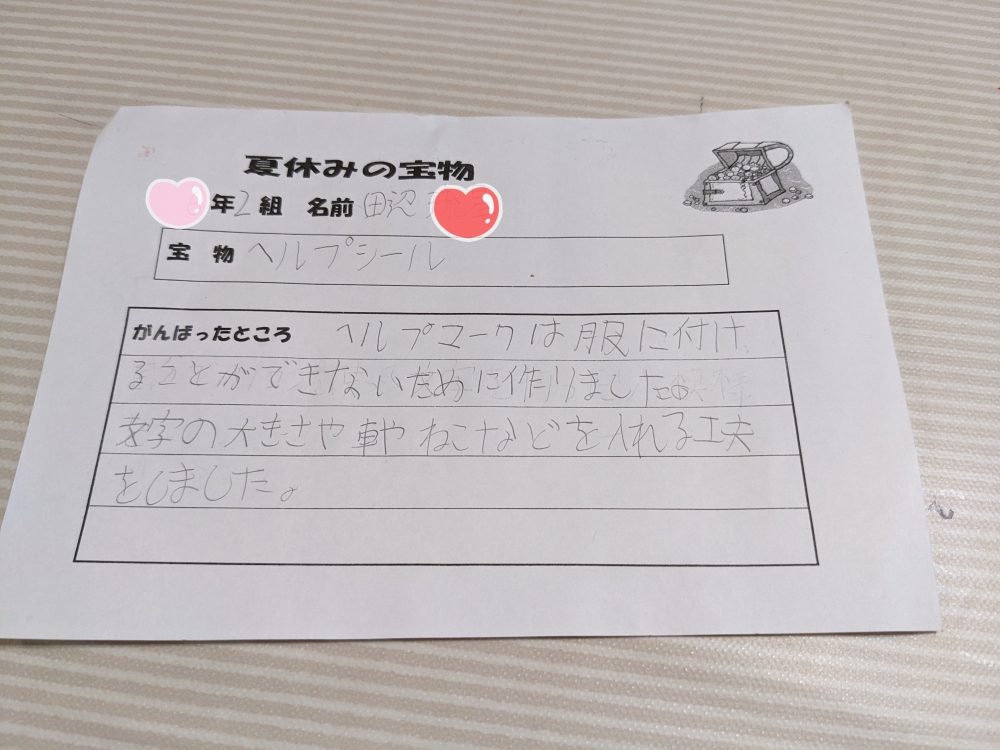 夏休みの宝物
年2組 名前 田辺
宝物 ヘルプシール
がんばったところ ヘルプマークは服に付け
ることができないために作りました。
文字の大きさや車やねこなどを入れる工夫
をしました。